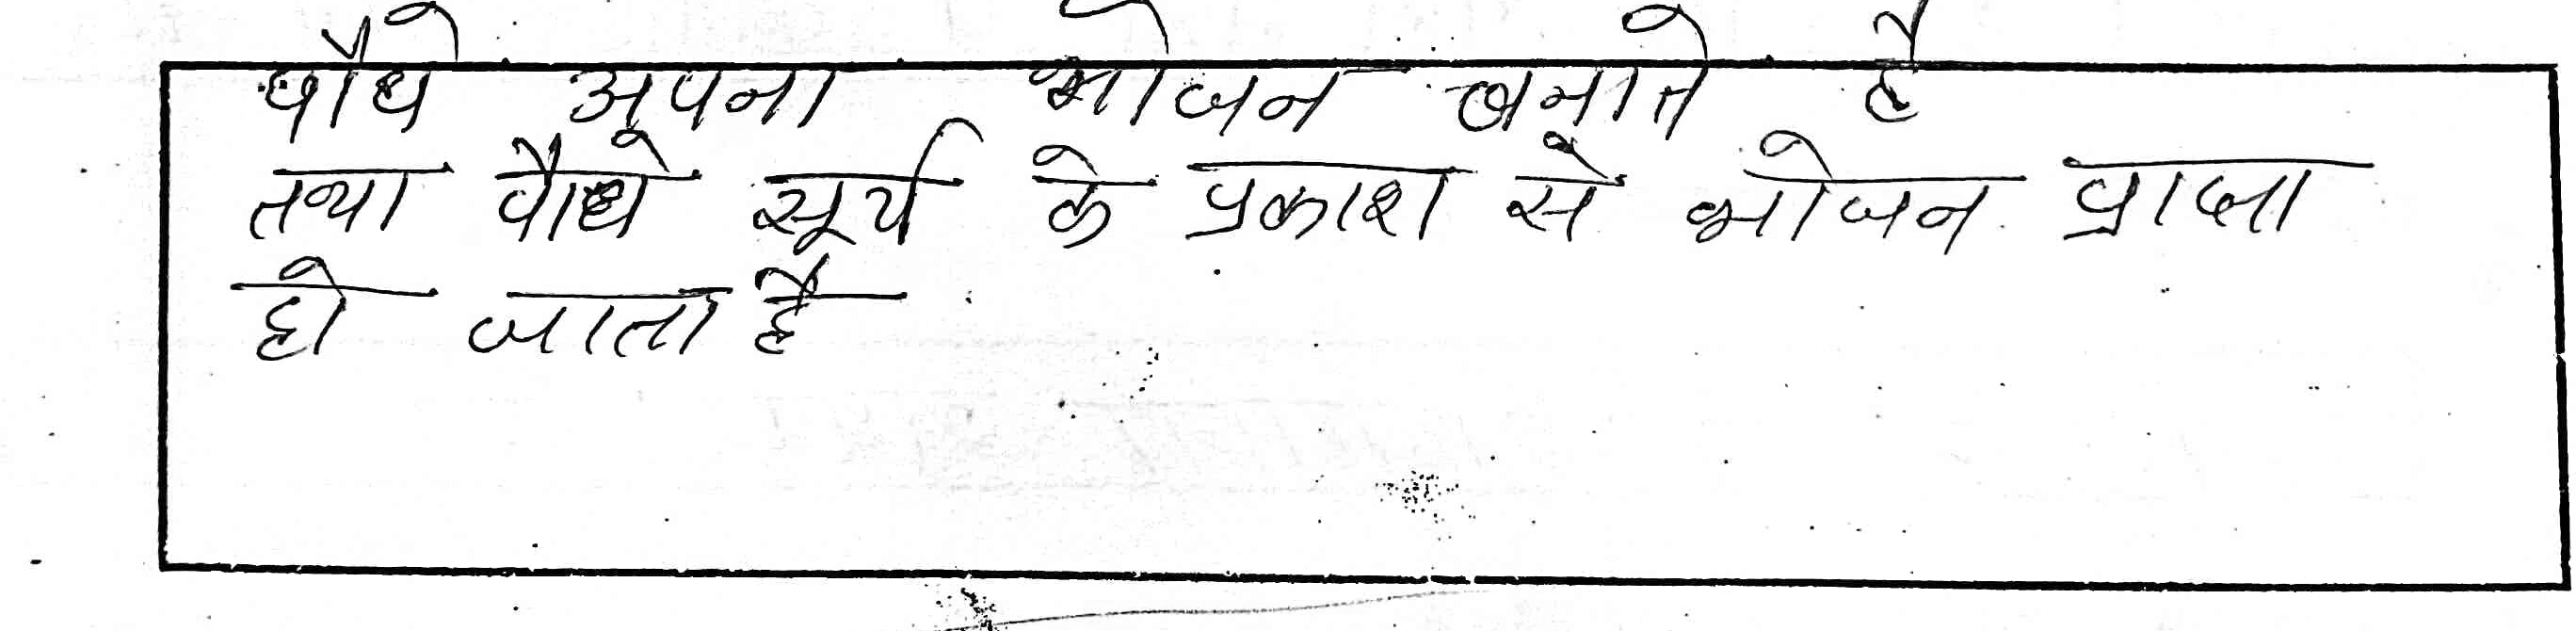 पौधे अपना भोजन बनाते है
तथा पौधे सूर्य के प्रकाश से भोजन प्राप्ता
हो जाता है